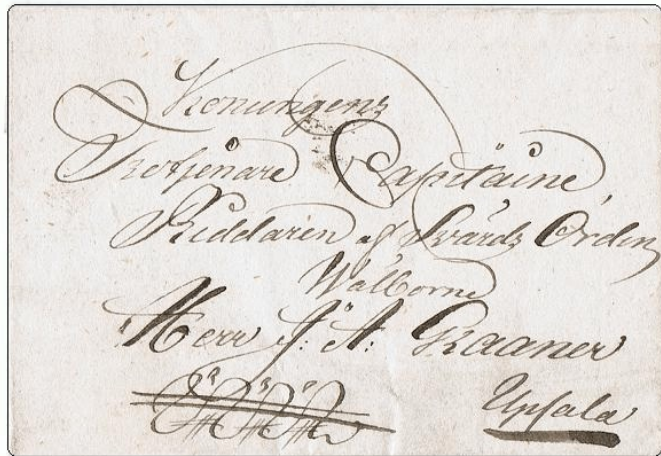 Konungens
Trotjenare Capitaine,
Riddaren af Svärds Orden
Wälborne
Herr J: A: Kaaner
Upsala